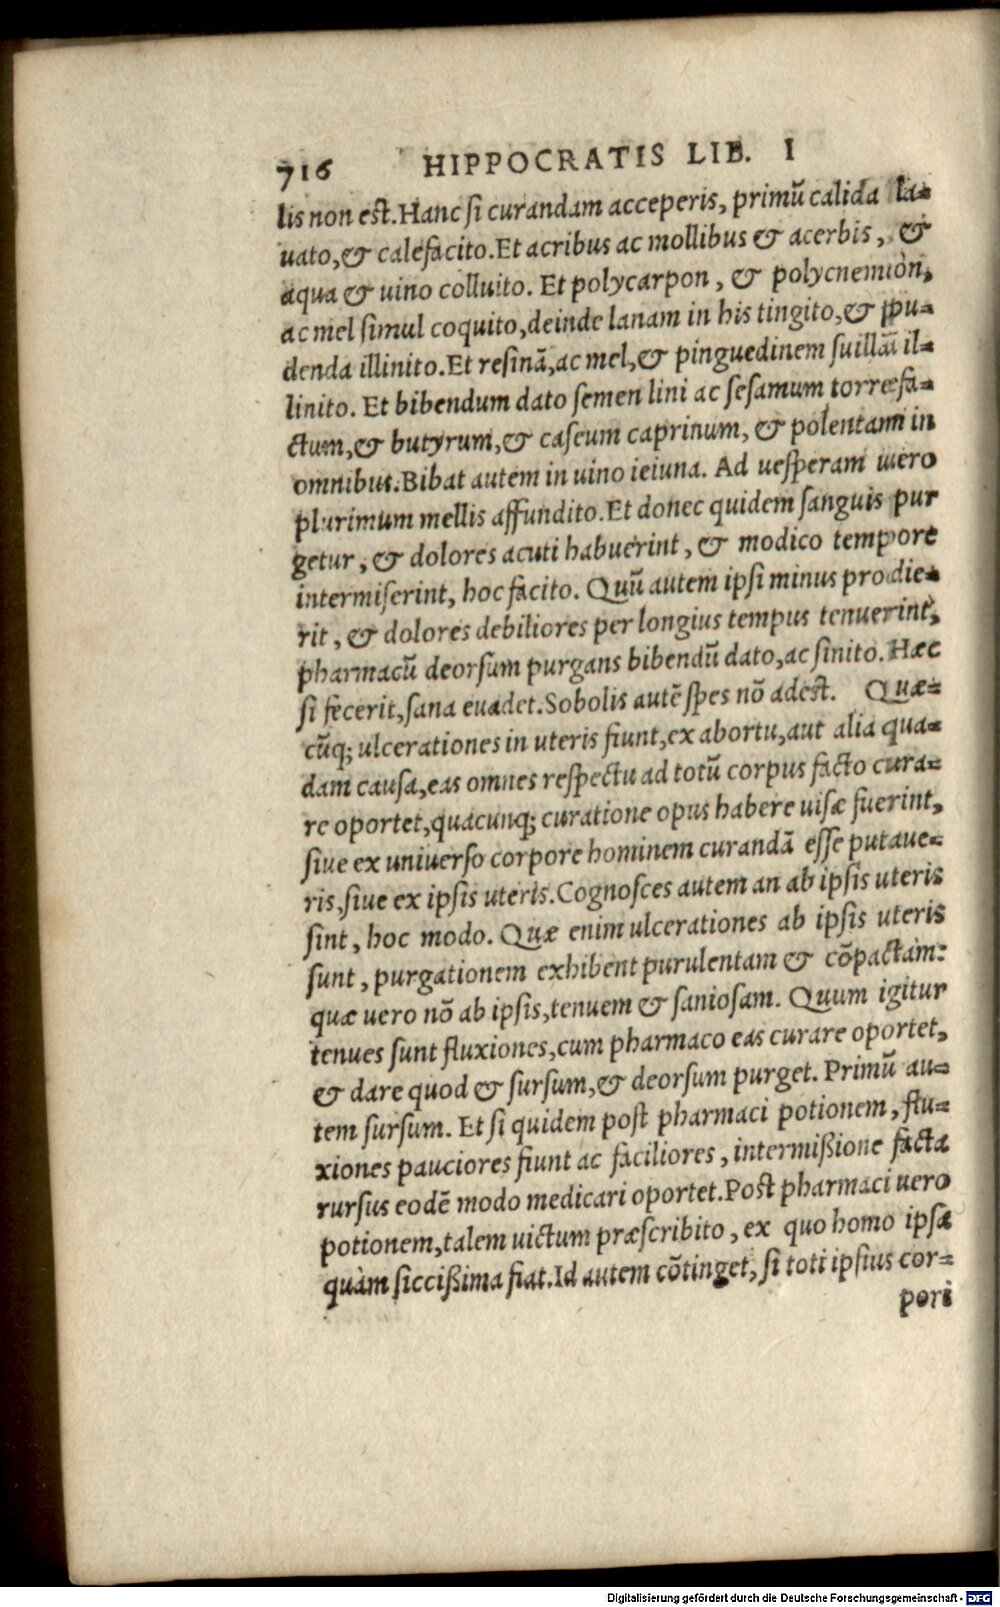 716 HIPPOCRATIS LIB. I
lis non est. Hanc si curandam acceperis, primũ calida la-
uato, & calefacito. Et acribus ac mollibus & acerbis, &
aqua & uino colluito. Et polycarpon, & polycnemiòn,
ac mel simul coquito, deinde lanam in his tingito, & ꝑpu-
denda illinito. Et resinã, ac mel, & pinguedinem suillã il-
linito. Et bibendum dato semen lini ac sesamum torrefa-
ctum, & butyrum, & caseum caprinum, & polentam in
omnibus. Bibat autem in uino ieiuna. Ad uesperam uero
plurimum mellis affundito. Et donec quidem sanguis pur
getur, & dolores acuti habuerint, & modico tempore
intermiserint, hoc facito. Quũ autem ipsi minus prodie-
rit, & dolores debiliores per longius tempus tenuerint,
pharmacũ deorsum purgans bibendũ dato, ac sinito. Hæc
si fecerit, sana euadet. Sobolis autẽ spes nõ adest. Quæ-
cũq; ulcerationes in uteris fiunt, ex abortu, aut alia qua-
dam causa, eas omnes respectu ad totũ corpus facto cura-
re oportet, quacunq; curatione opus habere uisæ fuerint,
siue ex uniuerso corpore hominem curandã esse putaue-
ris, siue ex ipsis uteris. Cognosces autem an ab ipsis uteris
sint, hoc modo. Quæ enim ulcerationes ab ipsis uteris
sunt, purgationem exhibent purulentam & cõpactam:
quæ uero nõ ab ipsis, tenuem & saniosam. Quum igitur
tenues sunt fluxiones, cum pharmaco eas curare oportet,
& dare quod & sursum, & deorsum purget. Primũ au-
tem sursum. Et si quidem post pharmaci potionem, flu-
xiones pauciores fiunt ac faciliores, intermißione facta
rursus eodẽ modo medicari oportet. Post pharmaci uero
potionem, talem uictum præscribito, ex quo homo ipsa
quàm siccißima fiat. Id autem cõtinget, si toti ipsius cor-
pori
Digitalisierung gefördert durch die Deutsche Forschungsgemeinschaft - DFG